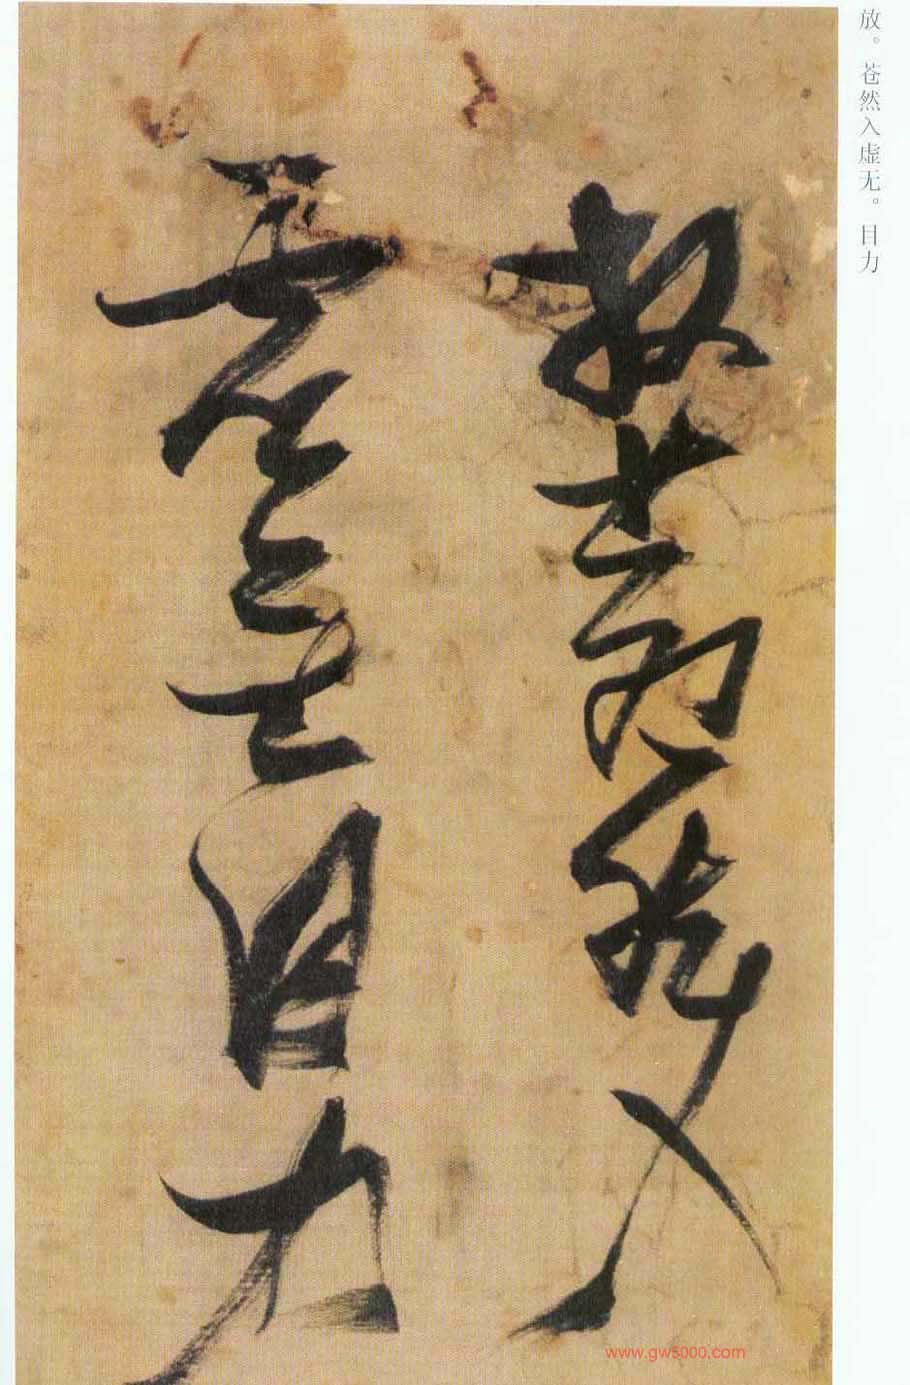 放。苍然入虚无。目力
放蒼然入
虛無目力
www.gw5000.com